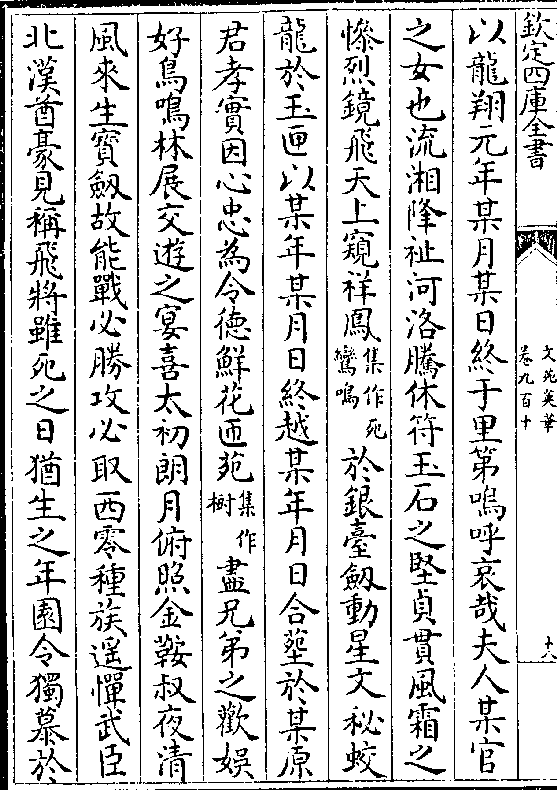 欽定四庫全書
文苑英華
卷九百十
十八
以龍翔元年某月某日終于里第嗚呼哀哉夫人某官
之女也流湘降祉河洛騰休符玉石之堅貞貫風霜之
慘烈鏡飛天上窺祥鳳集作宛鸞鳴於銀臺劔動星文秘蛟
龍於玉匣以某年某月日終越某年月日合塟於某原
君孝實因心忠為令德鮮花匝苑集作樹盡兄弟之歡娱
好鳥鳴林展交遊之宴喜太初朗月俯照金鞍叔夜清
風來生寳劔故能戰必勝攻必取西零種族遥憚武臣
北漢酋豪見稱飛將雖死之日猶生之年園令獨慕於